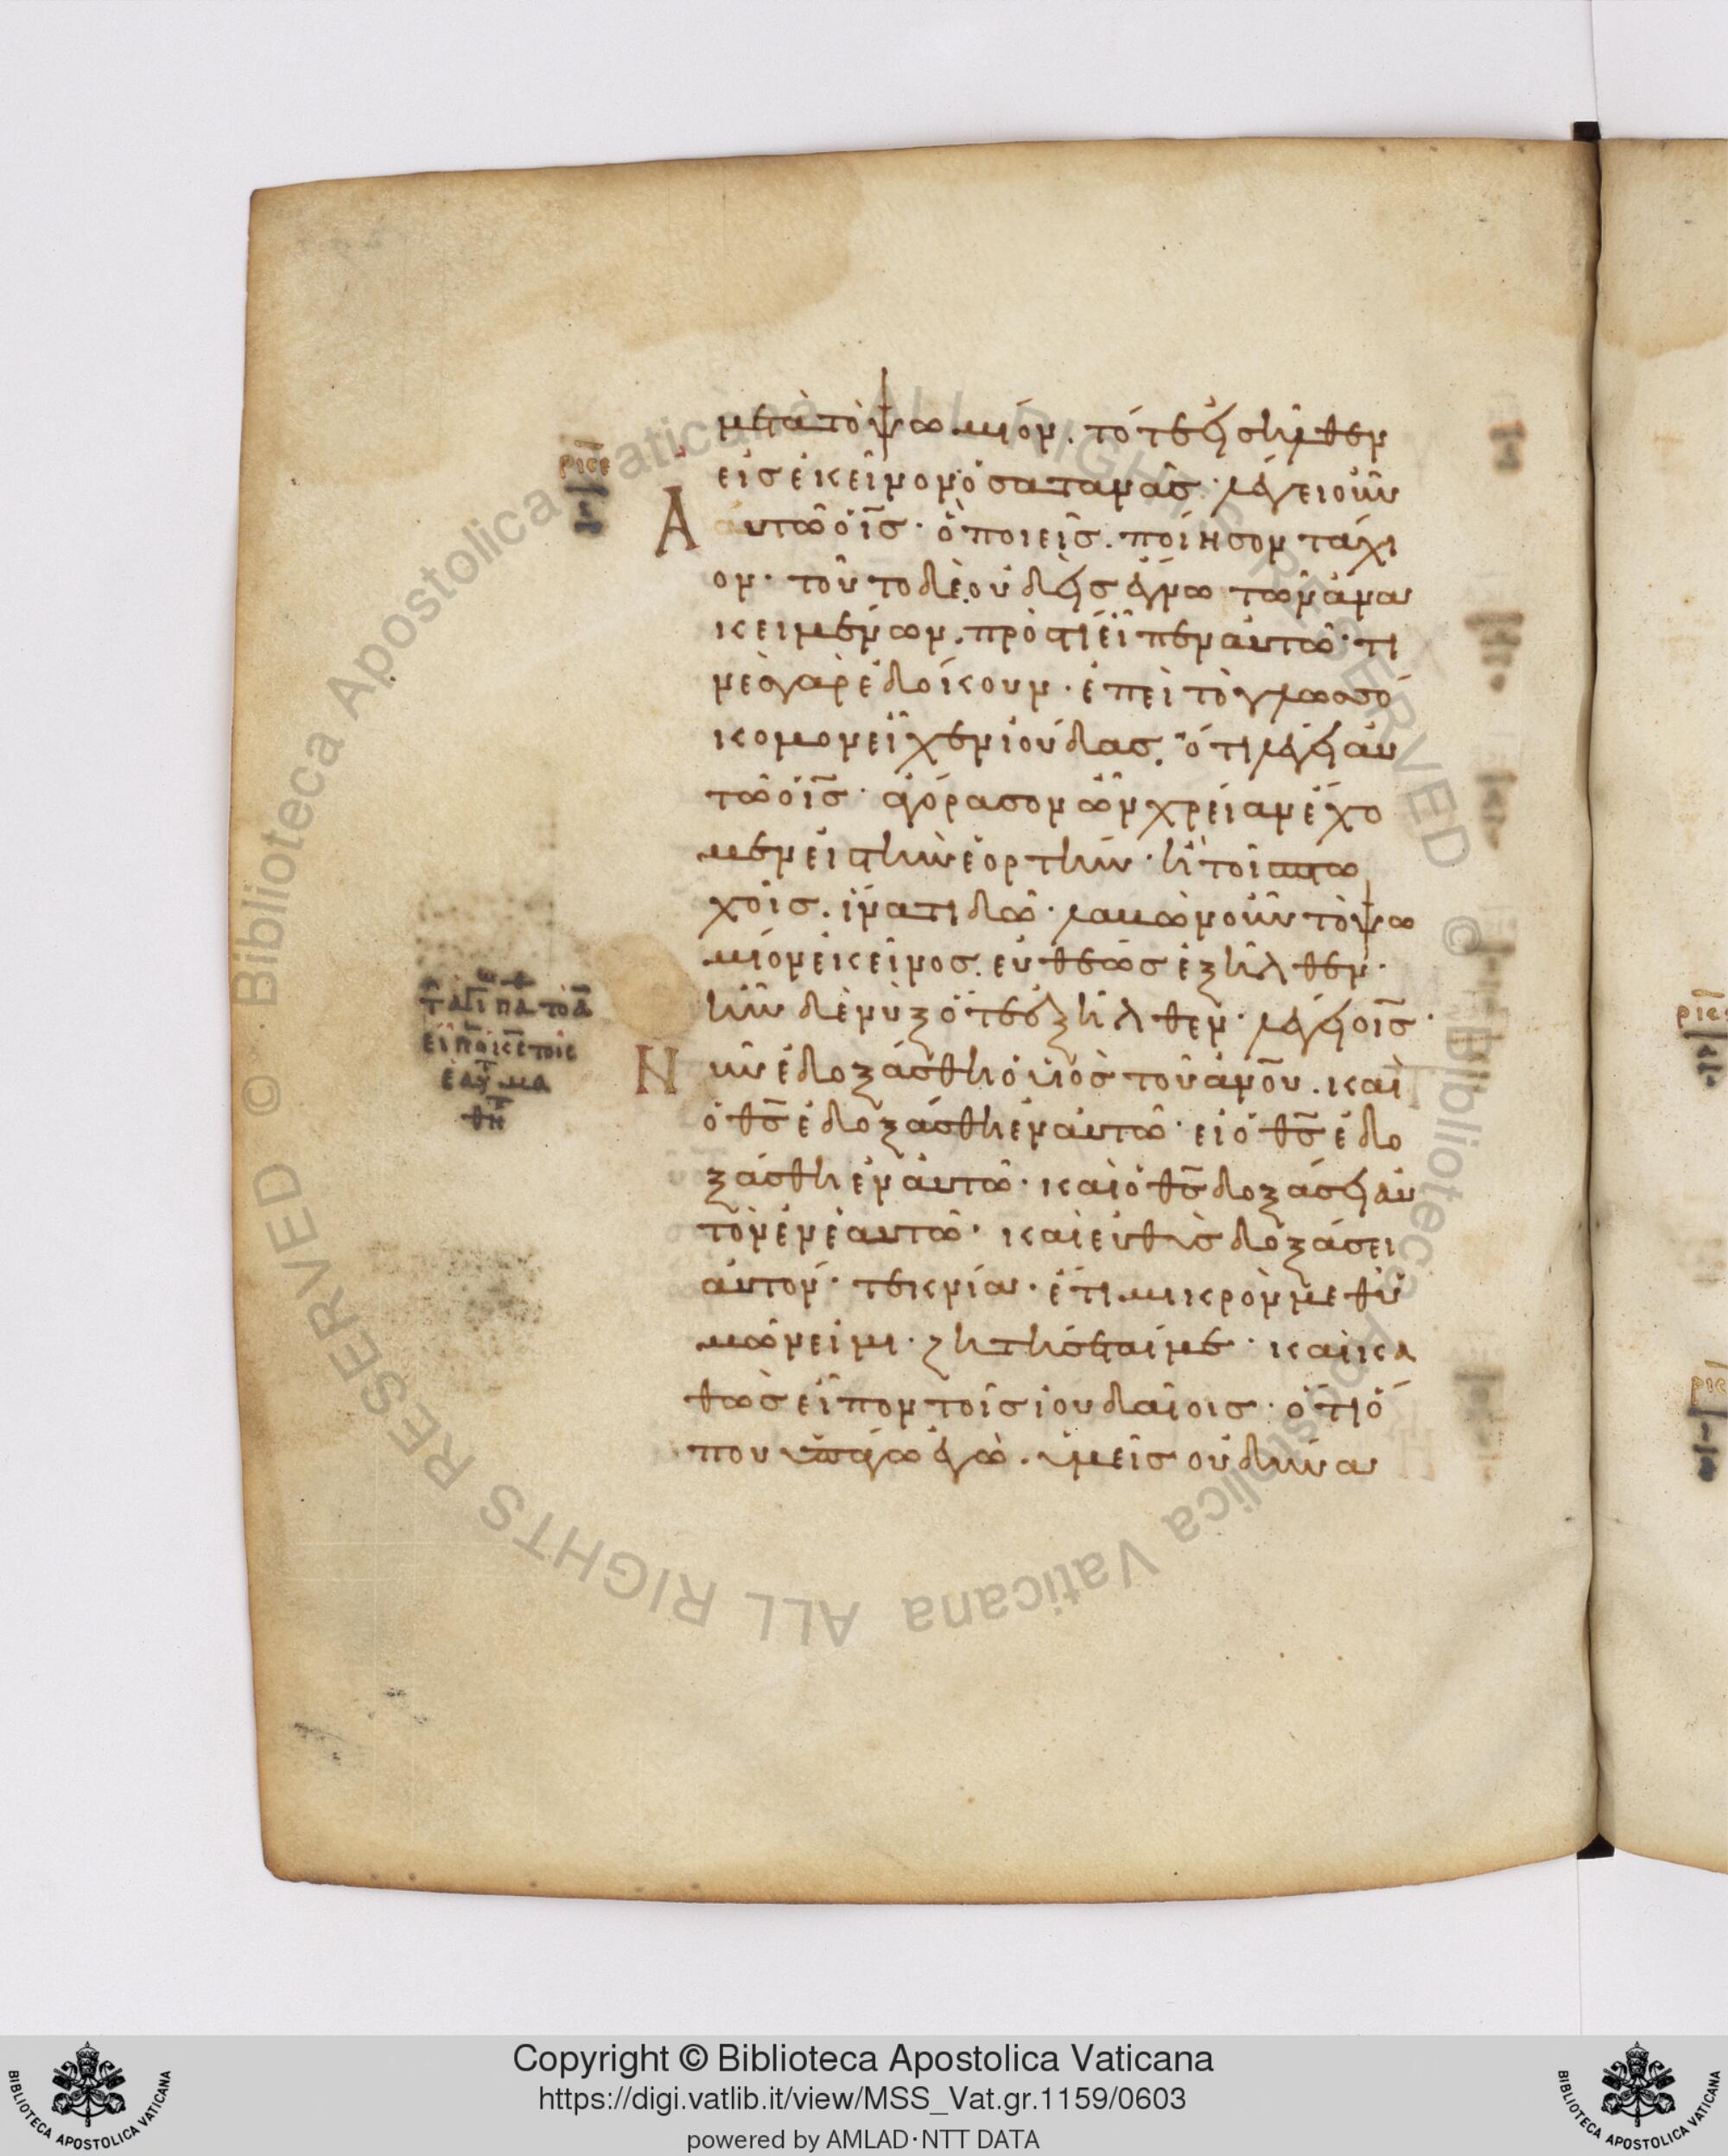 μετὰ τὸ ψωμίον. τότε εἰσῆλθεν
εἰς ἐκεῖνον ὁ σατανᾶς. λέγει οὖν
Αὐτῶ ὁ ις̅· ὃ ποιεῖς. ποίησον τάχι
ον· τοῦτο δὲ οὐδεὶς ἔγνω τῶν ἀνα
κειμένων. πρὸς τί εἶπεν αὐτῶ· τι
νὲς γὰρ ἐδόκουν· ἐπεὶ τὸ γλωσσό
κομον εἶχεν ἰούδας. ὅτι λέγει αὐ
τῶ ὁ ις̅· ἀγόρασον ὧν χρείαν ἔχο
μεν εἰς τὴν ἑορτήν· ἢ τοῖς πτω
χοῖς. ἵνα τι δῶ· λαβὼν οὖν τὸ ψω
μίον ἐκεῖνος. εὐθέως ἐξῆλθεν·
ἦν δὲ νὺξ ὅτε ἐξῆλθεν· λέγει ὁ ις̅·
Νῦν ἐδοξάσθη ὁ υἱὸς τοῦ ἀνο̅υ. καὶ
ὁ θς̅ ἐδοξάσθη ἐν αὐτῶ· εἰ ὁ θς̅ ἐδο
ξάσθη ἐν αὐτῶ· καὶ ὁ θς̅ δοξάσει αὐ
τὸν ἐν ἑαυτῶ· καὶ εὐθὺς δοξάσει
αὐτόν· τεκνία· ἔτι μικρὸν μεθ' ὑ
μῶν εἰμι· ζητήσετέ με· καὶ κα
θὼς εἶπον τοῖς ἰουδαίοις· ὅτι ὅ
που ὑπάγω ἐγὼ. ὑμεῖς οὐ δύνα
Copyright © Biblioteca Apostolica Vaticana
https://digi.vatlib.it/view/MSS_Vat.gr.1159/0603
powered by AMLAD·NTT DATA
BIBLIOTECA APOSTOLICA VATICANA
BIBLIOTECA APOSTOLICA VATICANA
© Biblioteca Apostolica Vaticana ALL RIGHTS RESERVED
© Biblioteca Apostolica Vaticana ALL RIGHTS RESERVED